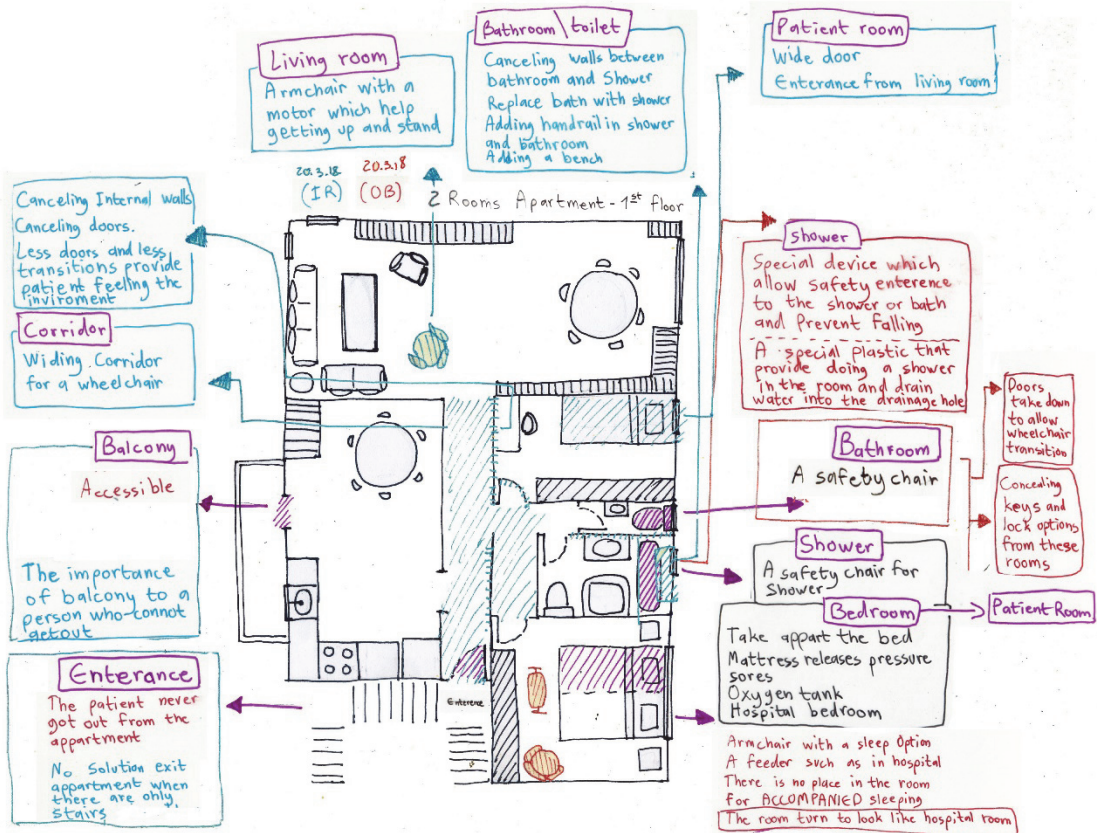 Living room
Armchair with a
motor which help
getting up and stand
Bathroom\toilet
Canceling walls between
bathroom and Shower
Replace bath with shower
Adding handrail in shower
and bathroom
Adding a bench
Patient room
Wide door
Enterance from living room
20.3.18
(IR)
20.3.18
(OB)
2 Rooms Apartment - 1st floor
Canceling Internal walls
Canceling doors.
Less doors and less
transitions provide
patient feeling the
inviroment
Corridor
Widing Corridor
for a wheelchair
Balcony
Accessible
The importance
of balcony to a
person who-connot
getout
Enterance
The patient never
got out from the
appartment
No Solution exit
appartment when
there are only
stairs
Enterence
Shower
Special device which
allow safety enterence
to the shower or bath
and Prevent falling
A special plastic that
provide doing a shower
in the room and drain
water into the drainage hole
Doors
take down
to allow
wheelchair
transition
Bathroom
A safety chair
Concealing
keys and
lock options
from these
rooms
Shower
A safety chair for
Shower
Bedroom
Patient Room
Take appart the bed
Mattress releases pressure
sores
Oxygen tank
Hospital bedroom
Armchair with a sleep Option
A feeder such as in hospital
There is no place in the room
for ACCOMPANIED sleeping
The room turn to look like hospital room